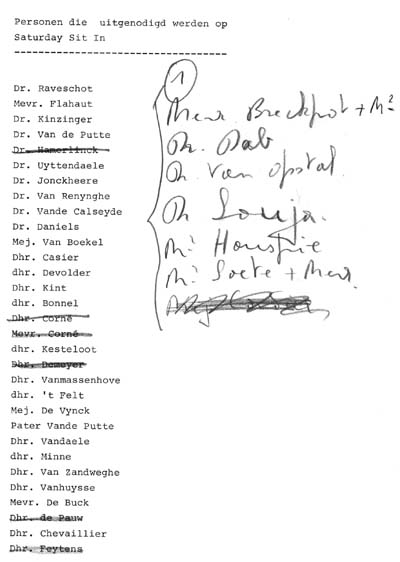 Personen die uitgenodigd werden op
Saturday Sit In
-----------------------------------
Dr. Raveschot
Mevr. Flahaut
Dr. Kinzinger
Dr. Van de Putte
Dr. Hamerlinck
Dr. Uyttendaele
Dr. Jonckheere
Dr. Van Renynghe
Dr. Vande Calseyde
Dr. Daniels
Mej. Van Boekel
Dhr. Casier
dhr. Devolder
Dhr. Kint
dhr. Bonnel
Dhr. Corné
Mevr. Corné
dhr. Kesteloot
Dhr. Demeyer
Dhr. Vanmassenhove
dhr. 't Felt
Mej. De Vynck
Pater Vande Putte
Dhr. Vandaele
dhr. Minne
Dhr. Van Zandweghe
Dhr. Vanhuysse
Mevr. De Buck
Dhr. de Pauw
Dhr. Chevaillier
Dhr. Feytens
1
Mevr Breckpot + Mr
Dr. Dab
Dr. Van Opstal
Dr Louja.
Mr
Mr Soete + Mevr.